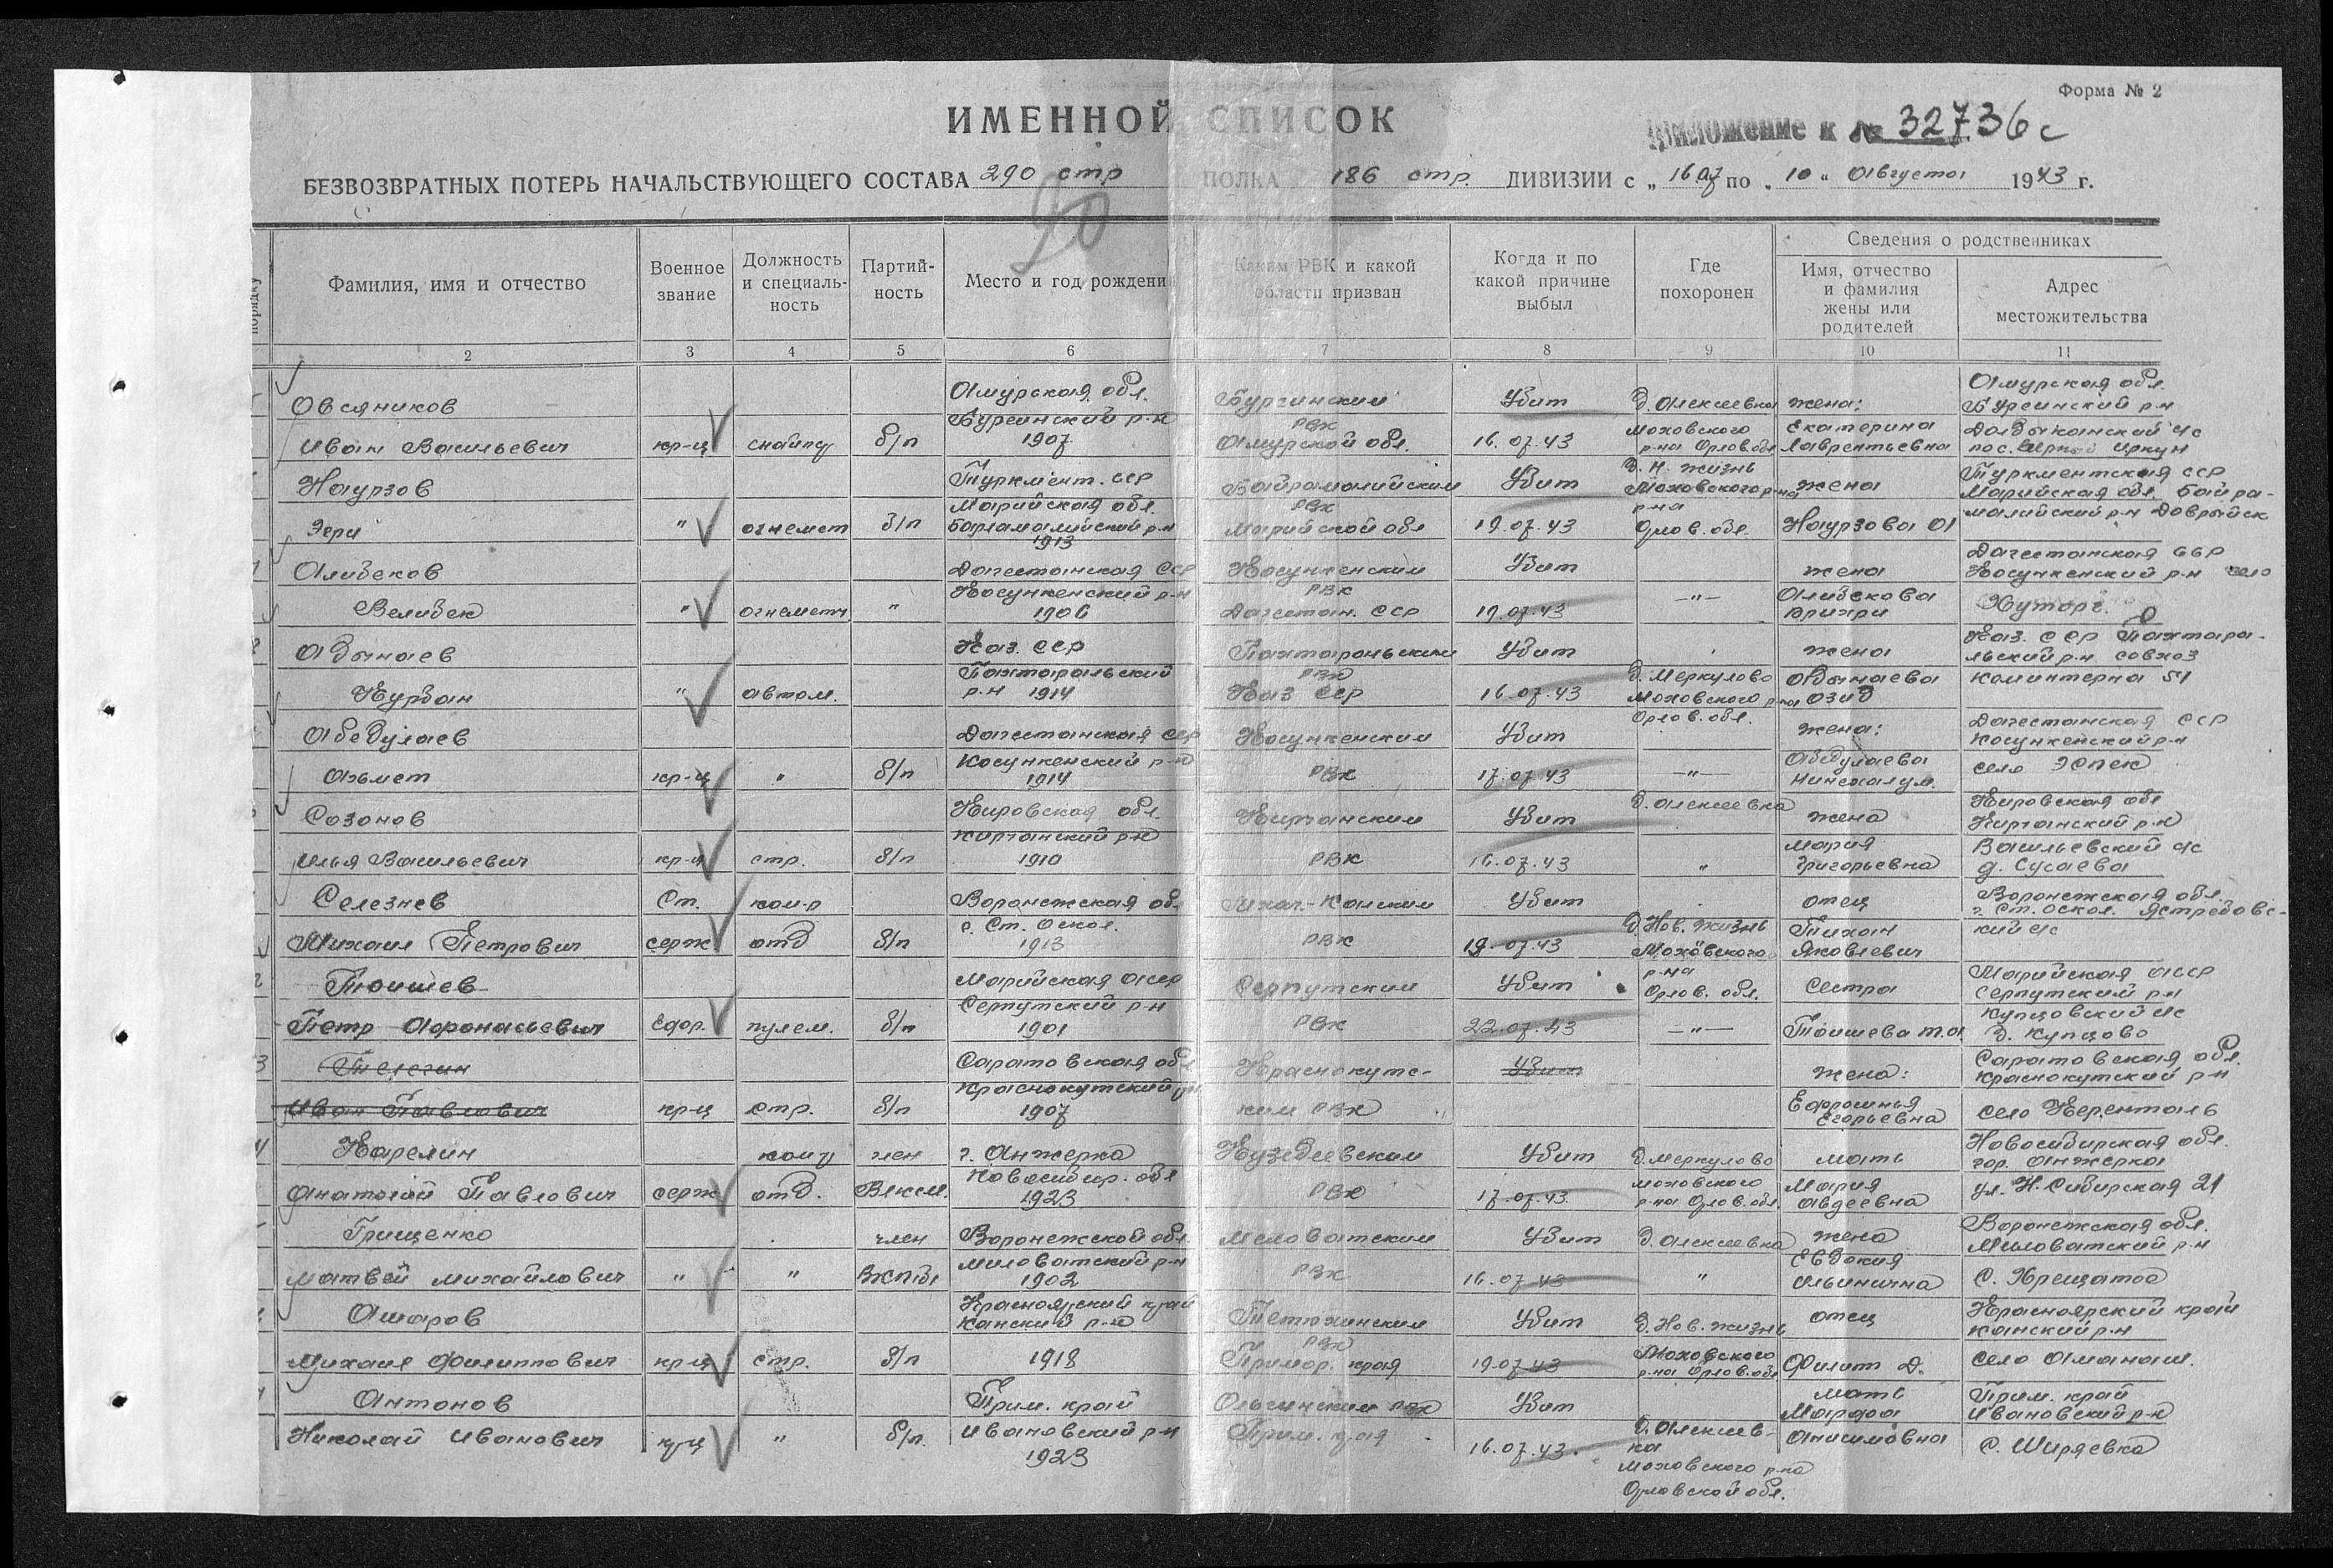 Форма № 2
ИМЕННОЙ СПИСОК
Приложение к № 32736с
БЕЗВОЗВРАТНЫХ ПОТЕРЬ НАЧАЛЬСТВУЮЩЕГО СОСТАВА 290 стр ПОЛКА 186 стр. ДИВИЗИИ с „ 16.07 по „ 10 " Августа 1943 г.
90
порядку
Фамилия, имя и отчество
Военное звание
Должность и специаль-ность
Партий-ность
Место и год рождени
Каким РВК и какой области призван
Когда и по какой причине выбыл
Где похоронен
Сведения о родственниках
Имя, отчество и фамилия жены или родителей
Адрес местожительства
2 3 4 5 6 7 8 9 10 11
Овсяников Амурская обл. Бурейнский р-н Бурейнским РВК Убит д. Алексеевка жена: Амурская обл. Бурейнский р-н
Иван Васильевич кр-ц снайпер б/п 1907 Амурской обл. 16.07.43 Моховского р-на Орлов.обл Екатерина Лаврентьевна с/с пос.
Наурзов Туркмент. сср Марийская обл. Байрамалийским РВК Убит д. Н. жизнь Моховского р-на жена Туркментская сср Марийская обл. Байра-
Эгри " огнемет б/п Байрамалийский р-н 1913 Марийской обл 19.07.43 Орлов. обл. Наурзова О малийский р-н
Алибеков Дагестанская сср Косункенский р-н Косункенским РВК Убит жена Дагестанская ССР Косункенский р-н село
Велибек " огнемет " 1906 Дагестан. ССР 19.07.43 —"— Алибекова Хутарг.
Адынаев Каз. ССР Пахтаральский Пахтаральским РВК Убит жена Каз. ССР Пахтара-льский р-н совхоз
Курбан " автом. р-н 1914 Каз ССР 16.07.43 д. Меркулово Моховского р-на Орлов. обл. Адынаева Озид Коминтерна 51
Абедулаев Дагестанская сср Косункенским Убит жена: Дагестанская ССР Косункенский р-н
Азьмет кр-ц " б/п Косункенский р-н 1914 РВК 17.07.43 —"— Абедулаева село Эспек
Созонов Кировская обл. Кирчанский р-н Кирчанским Убит д. Алексеевка жена Кировская обл Кирчанский р-н
Илья Васильевич кр-ц стр. б/п 1910 РВК 16.07.43 " Мария Григорьевна Васильевский с/с д. Сусаева
Селезнев Ст. ком-р Воронежская обл. Убит отец Воронежская обл. г. Ст. Оскол. Ястребовс-
Михаил Петрович серж. отд б/п г. Ст. Оскол. 1913 РВК 19.07.43 д. Нов. жизнь Моховского р-на Орлов. обл. Тихон Яковлевич кий с/с
Тоишев Марийская АССР Сернутский р-н Сернутским Убит Сестра Марийская АССР Сернутский р-н
Петр Афонасьевич Ефр. пулем. б/п 1901 РВК 22.07.43 —"— Тоишева Т.А. Купцовский с/с д. Купцово
Телегин Саратовская обл Краснокутский р-н Краснокутс- Убит жена: Саратовская обл. Краснокутский р-н
Иван Павлович кр-ц стр. б/п 1907 ким РВК Ефросинья Егорьевна село Ферентань
Карелин кому член г. Анжерка Кузедеевским Убит д. Меркулово мать Новосибирская обл. гор. Анжерка
Анатолий Павлович серж отд. ВЛКСМ. Новосибир. обл 1923 РВК 17.07.43 Моховского р-на Орлов. обл. Мария Авдеевна ул. Н. Сибирская 21
Грищенко член Воронежской обл. Меловатским Убит д. Алексеевка жена Воронежская обл. Миловатский р-н
Матвей Михайлович " " ВКП/б/ Миловатский р-н 1902 РВК 16.07.43 " Евдокия Ильинична с. Хрещатое
Ашаров Красноярский край Канский р-н Тетюхинским РВК Убит д. Нов. жизнь отец Красноярский край Канский р-н
Михаил Филиппович кр-ц стр. б/п 1918 Примор. края 19.07.43 Моховского р-на Орлов. обл Филипп Д. село Аманаш.
Антонов Прим. край Ольгинским РВК Убит мать Прим. край Ивановский р-н
Николай Иванович кр-ц " б/п Ивановский р-н 1923 Прим. края 16.07.43. д. Алексеев-ка Моховского р-на Орловской обл. Марфа Анисимовна с. Ширяевка